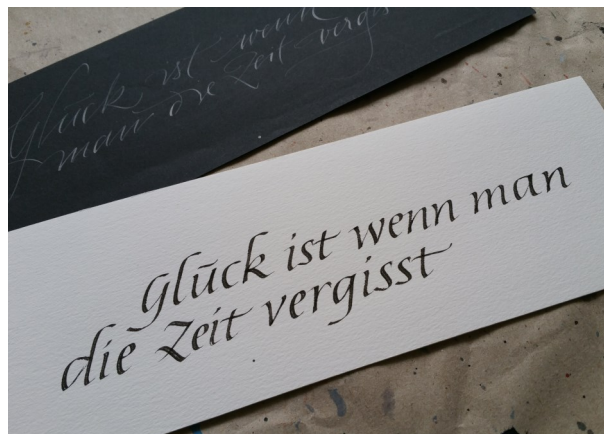 Glück ist wenn
man die Zeit vergis
Glück ist wenn man
die Zeit vergisst